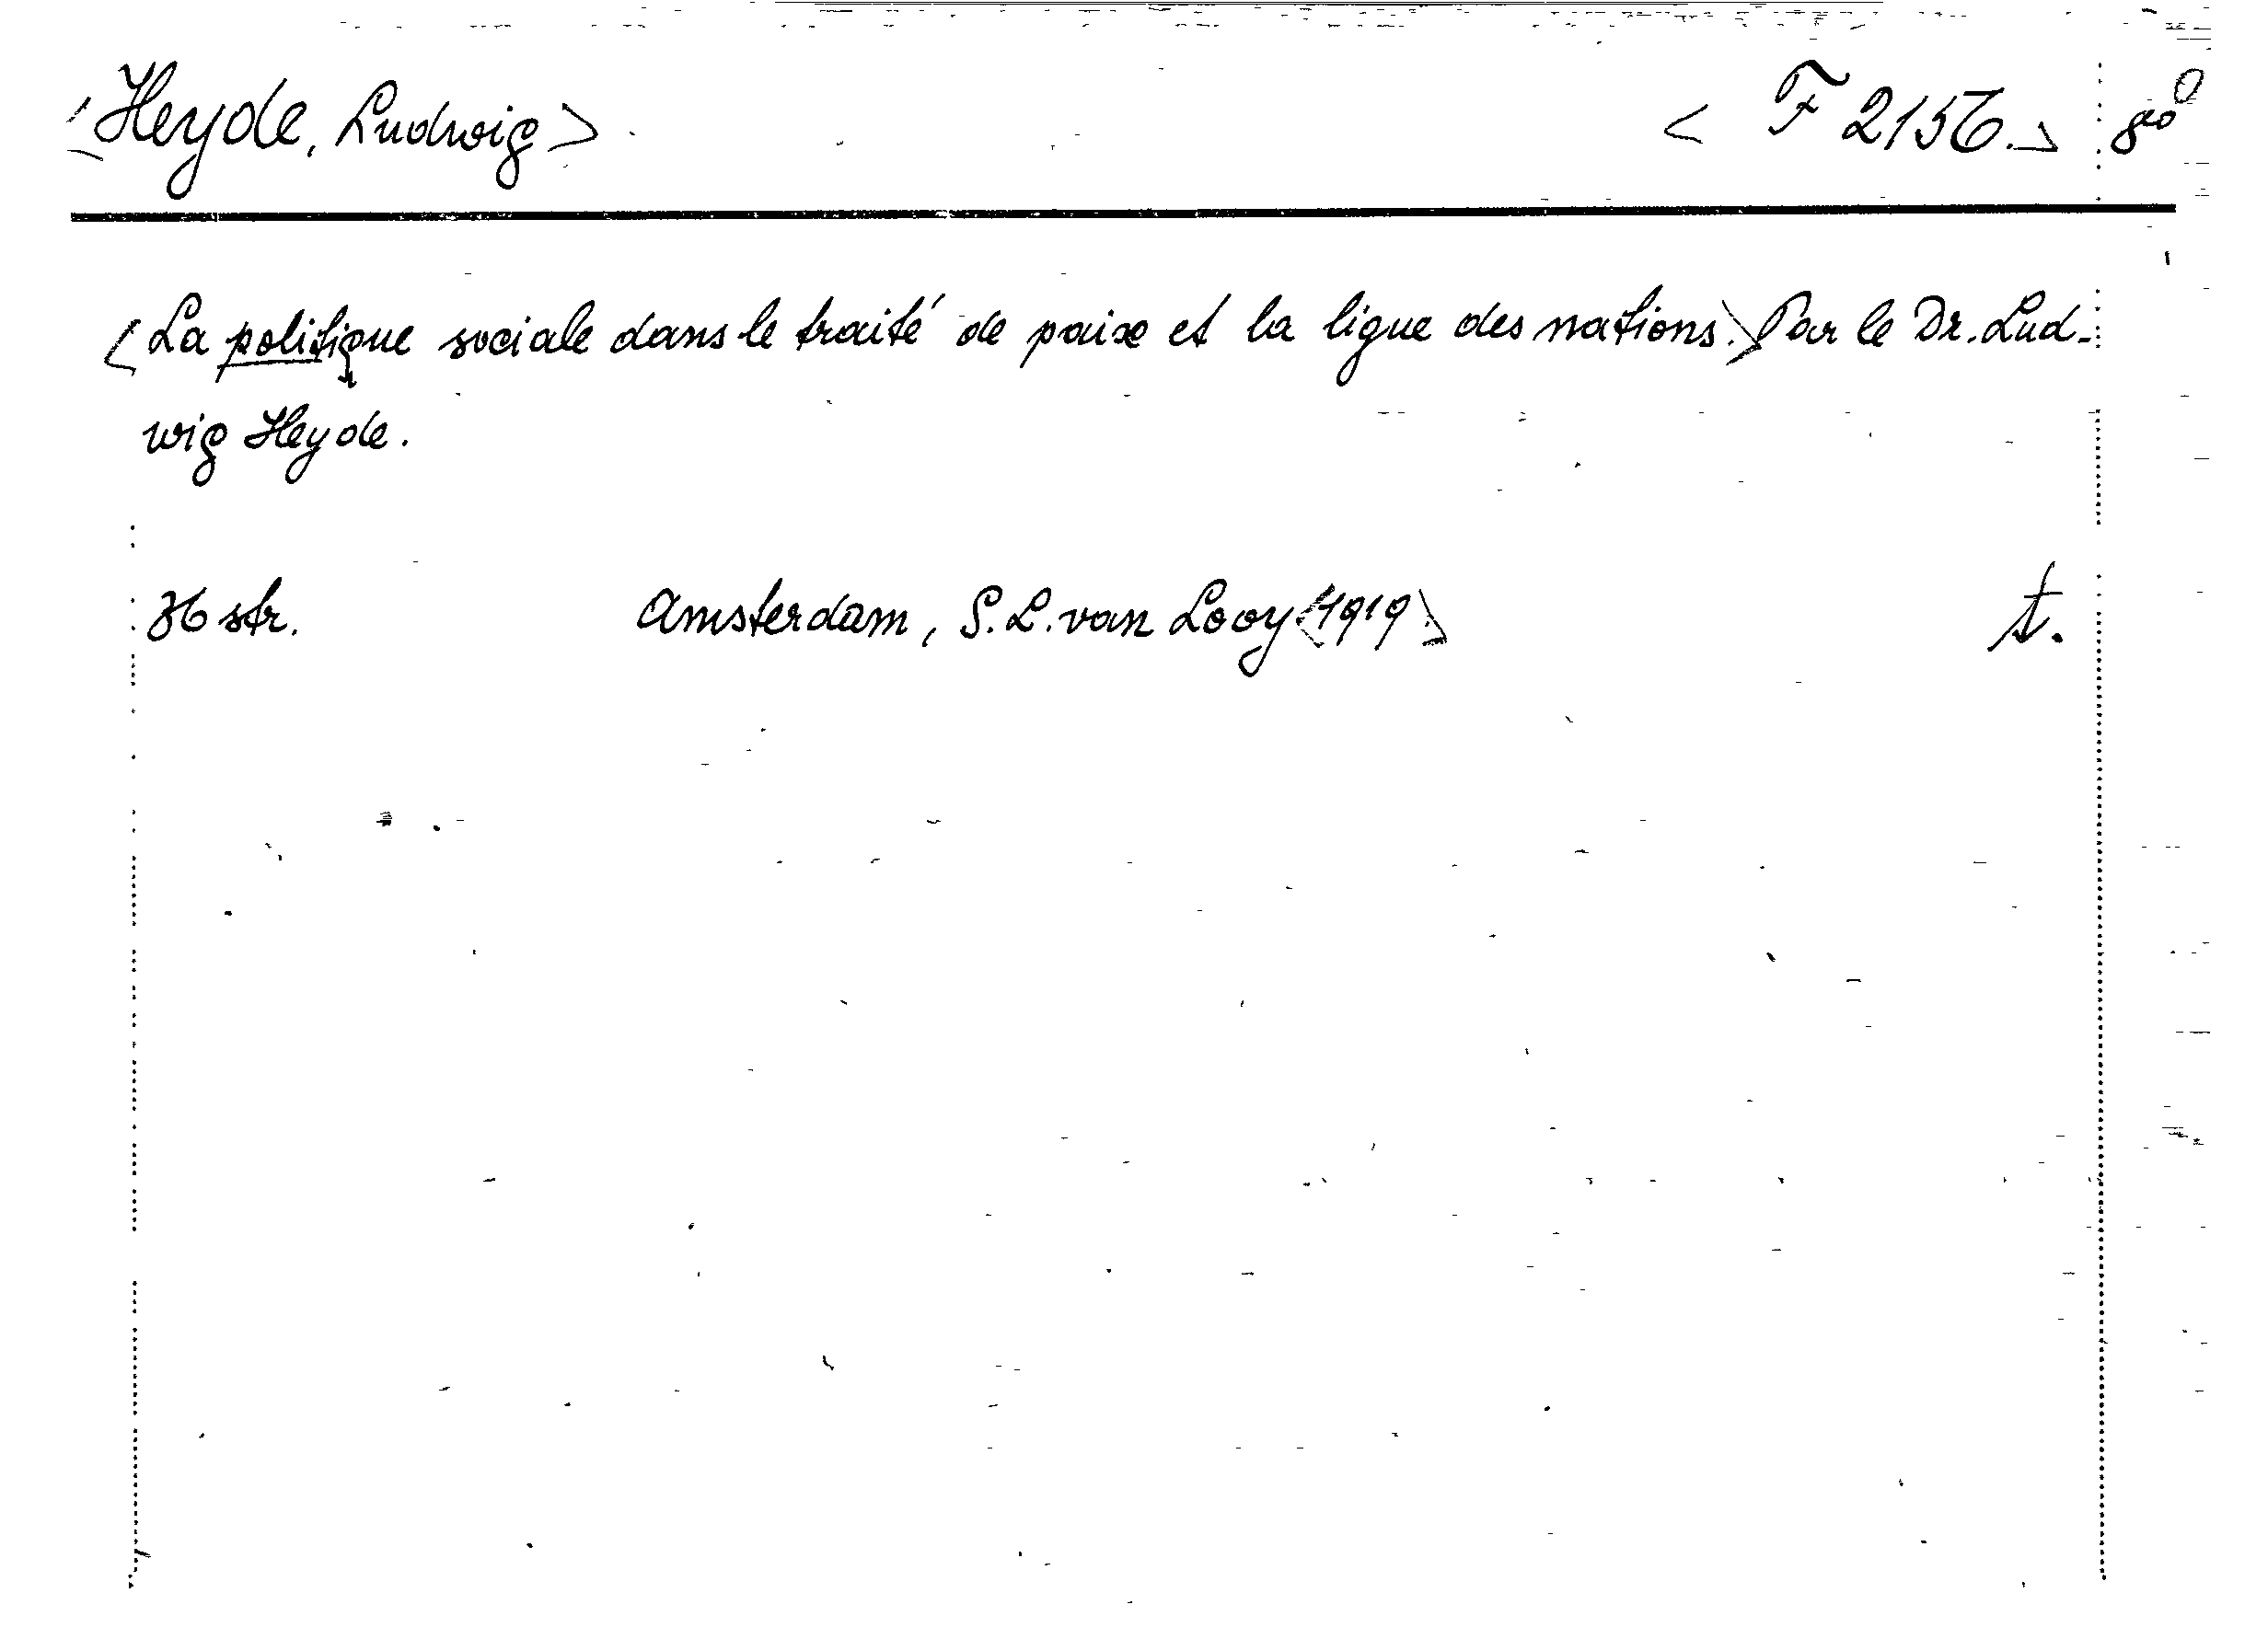 <Heyde, Ludwig> < F 2156. > 8º
<La politique sociale dans le traité de paix et la ligue des nations.> Par le Dr. Lud-
wig Heyde.
36 str. Amsterdam, S. L. van Looy <1919> t.